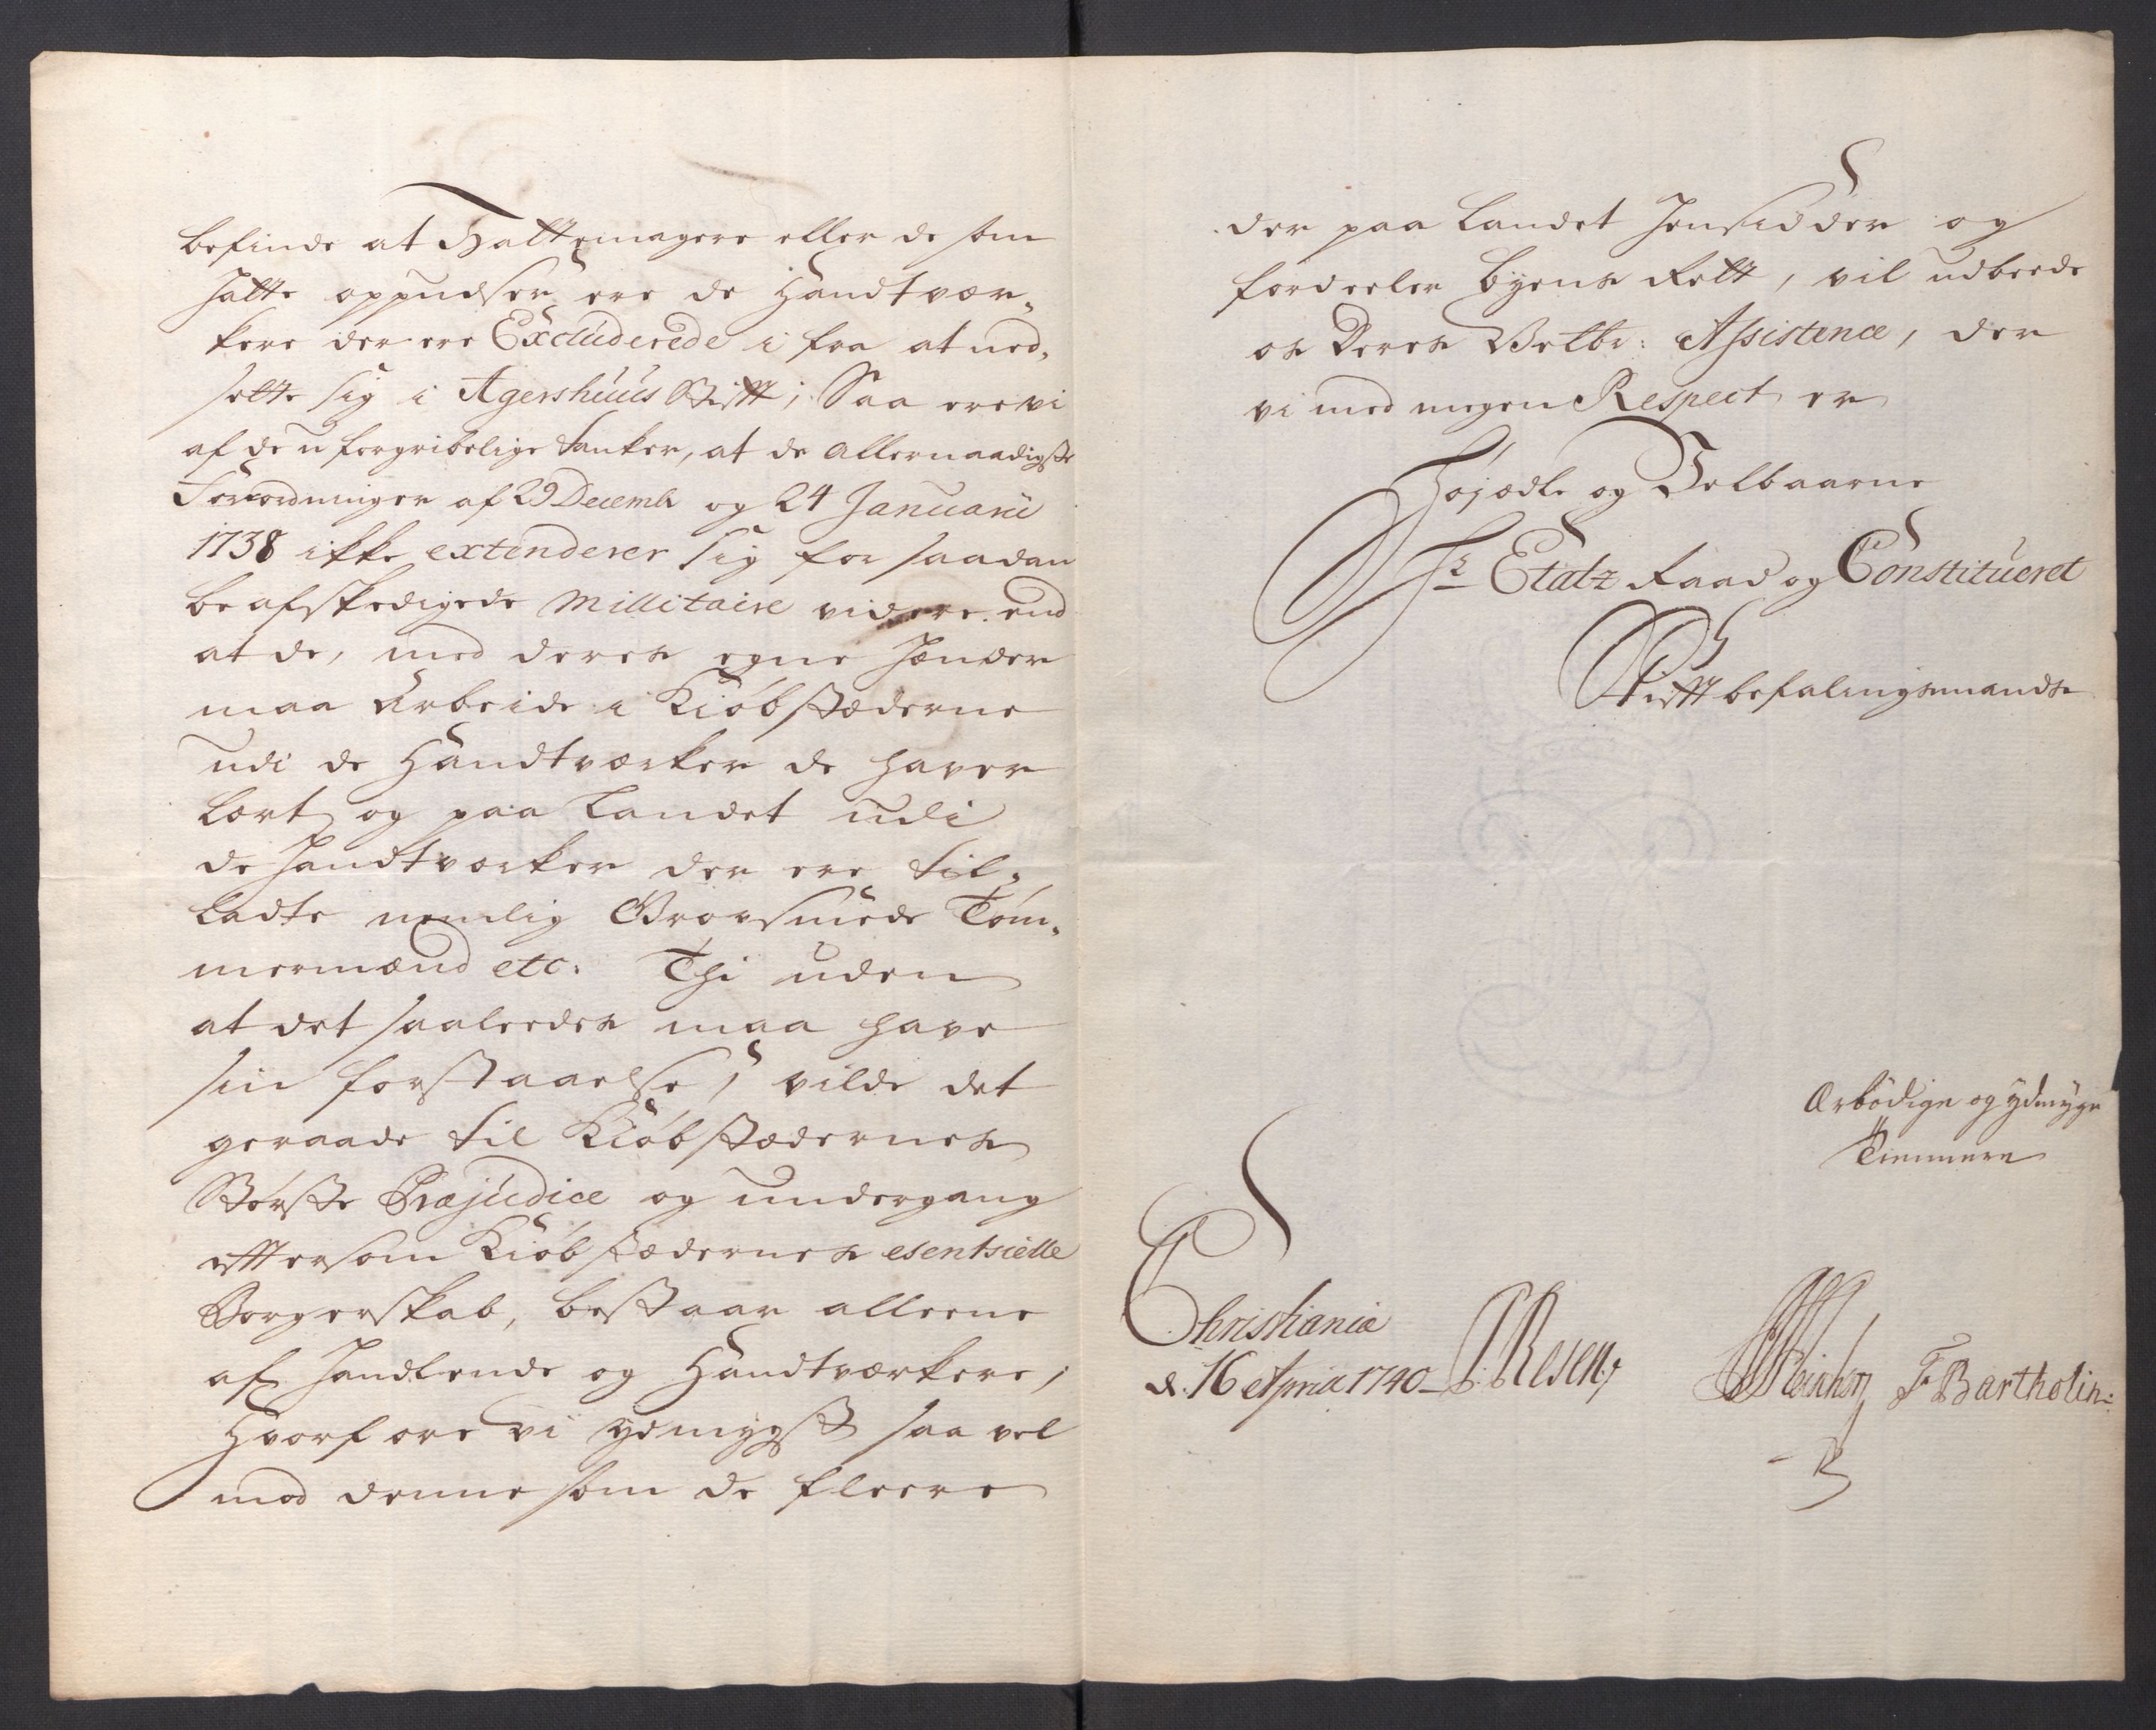 befinde at Hattemagere eller de som
hatte oppudser ere de Handtvær-
kere der ere Excluderede i fra at ned-
sette sig i Agershuus Stifft; Saa ere vi
af de u forgribelige tanker, at de allernaadigste
Forordninger af 29 Decembr og 24 Januarii
1738 ikke extenderer sig for saadan
beafskedigede Millitaire videre end
at de, med deres egne hænder
maa Arbeide i Kiöbstæderne
udi de Handtværker de haver
lært og paa Landet udi
de handtværker der ere til-
ladte nemlig Grovsmede Töm-
mermænd etc: Thi uden
at det saaleedes maa have
sin forstaaelse, vilde det
geraade til Kiöbstædernes
Störste Præjudice og undergang
efftersom Kiöbstædernes esentsielle
Borgerskab, bestaar alleene
af handlende og Handtværkere;
Hvorfore vi ydmygst saa vel
mod denne som de fleere
der paa Landet hensidder og
fordeeler byens Rett, vil udbeede
os Deres Velbr: Assistence, der
vi med megen Respect er
Höjædle og Velbaarne
Hr Etatz Raad og Constitueret
Stifftbefalingsmands
Ærbödige og ydmyge
Tiennere
Christiania
d. 16 April 1740 Resen
F Bartholin: